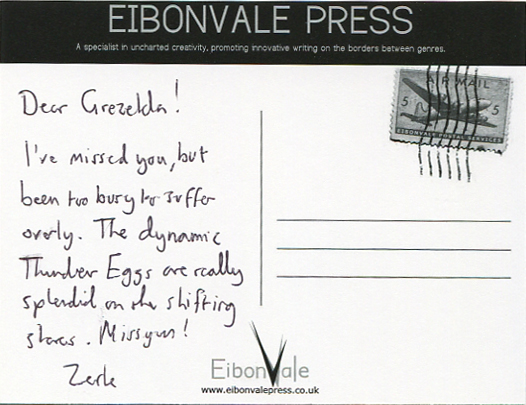 EIBONVALE PRESS
A specialist in uncharted creativity, promoting innovative writing on the borders between genres.
AIR MAIL
5 5
EIBONVALE POSTAL SERVICES
Dear Grezelda!
I've missed you, but
been too busy to suffer
overly. The dynamic
Thunder Eggs are really
splendid on the shifting
shores. Miss you!
EibonVale
www.eibonvalepress.co.uk